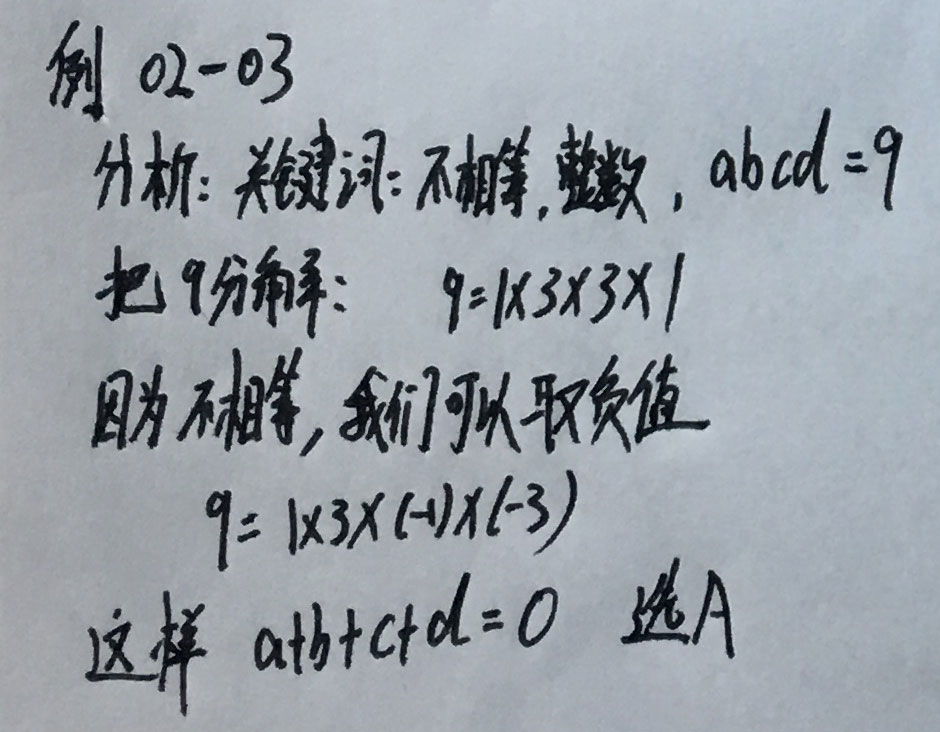 例 02-03
分析: 关键词: 不相等, 整数, abcd=9
把9分解: 9=1×3×3×1
因为不相等, 我们可以取负值
9=1×3×(-1)×(-3)
这样 a+b+c+d=0 选A